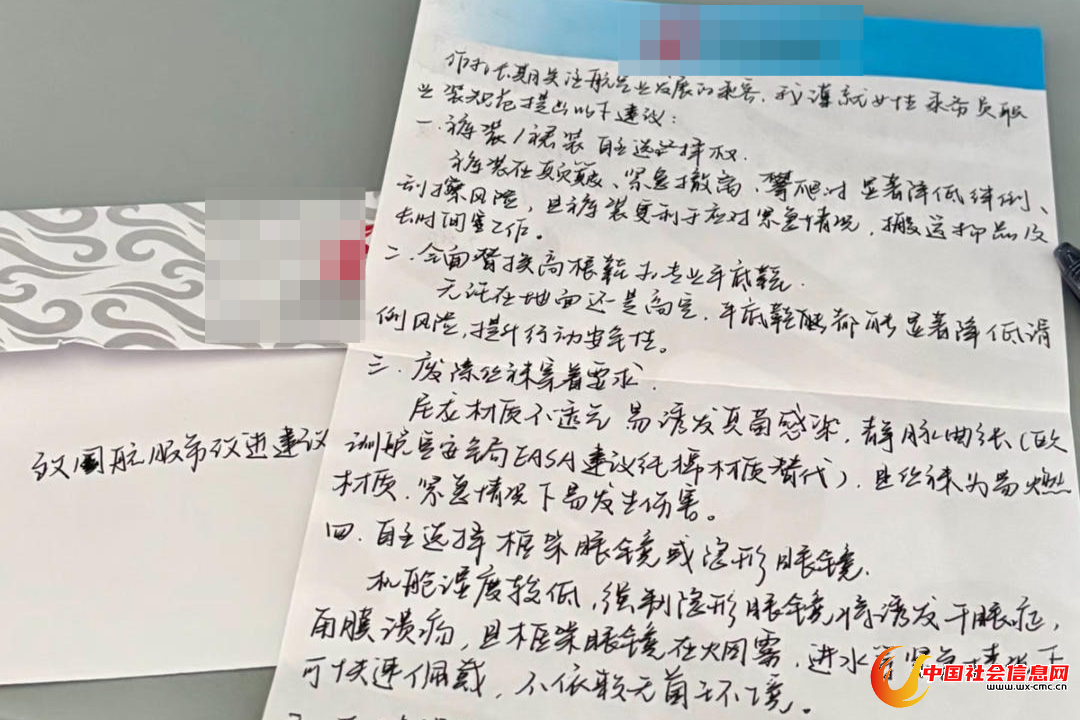 作为长期关注航空业发展的乘客，我谨就女性乘务员职
业装规范提出以下建议：
一.裤装/裙装自主选择权.
裤装在颠簸、紧急撤离、攀爬时显著降低绊倒、
刮擦风险，且裤装更利于应对紧急情况，搬运物品及
长时间工作。
二.全面替换高根鞋为专业平底鞋.
无论在地面还是高空，平底鞋都能显著降低滑
倒风险，提升行动安全性。
三.废除丝袜穿着要求.
尼龙材质不透气易诱发真菌感染，静脉曲张（欧
洲航空安全局EASA建议纯棉材质替代），且丝袜为易燃
材质.紧急情况下易发生伤害。
四.自主选择框架眼镜或隐形眼镜.
机舱湿度较低，强制隐形眼镜将诱发干眼症，
角膜溃疡，且框架眼镜在烟雾，进水等
可快速佩戴，不依赖无菌环境。
致国航服务改进建议
中国社会信息网
www.wx-cmc.cn